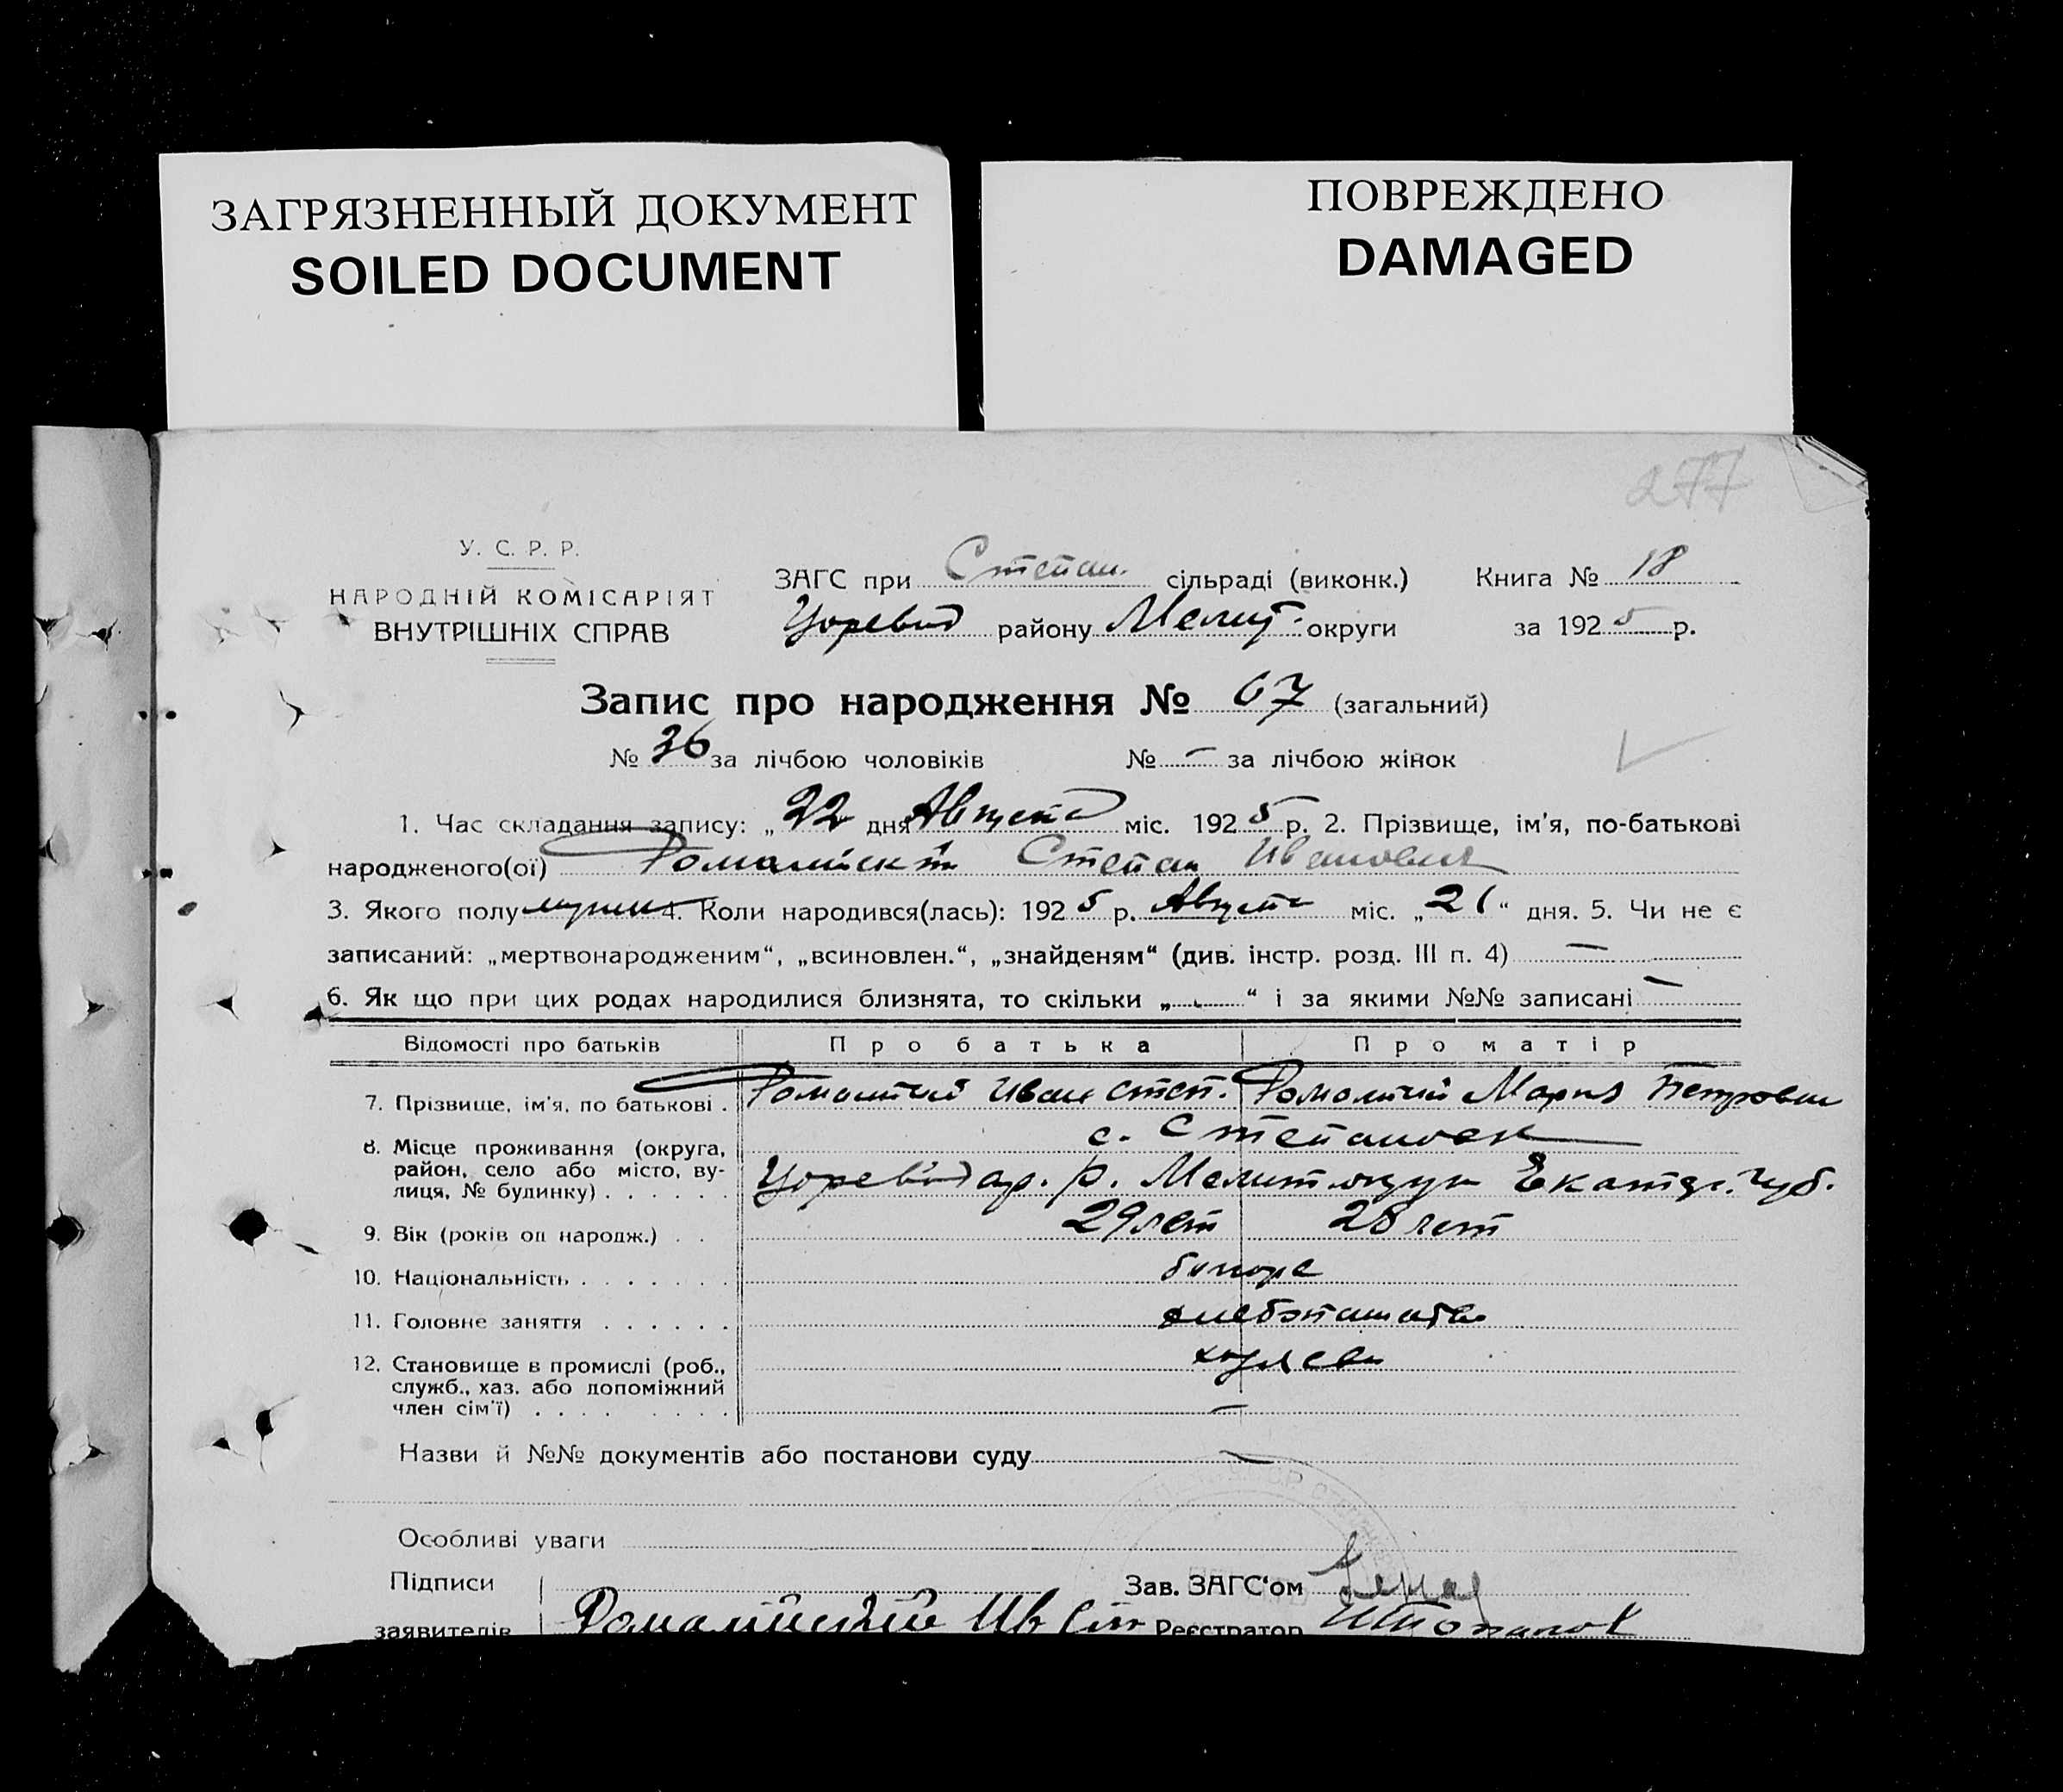 ЗАГРЯЗНЕННЫЙ ДОКУМЕНТ
SOILED DOCUMENT
ПОВРЕЖДЕНО
DAMAGED
277
У. С. Р. Р.
НАРОДНІЙ КОМІСАРІЯТ
ВНУТРІШНІХ СПРАВ
ЗАГС при Степан. сільраді (виконк.) Книга № 18
району Мелит. округи за 1925 р.
Запис про народження № 67 (загальний)
№ 36 за лічбою чоловіків № — за лічбою жінок
1. Час складання запису: „22 дня Августа міс. 1925 р. 2. Прізвище, ім'я, по-батькові
народженого(ої) Степан Иванович
3. Якого полу 4. Коли народився(лась): 1925 р. Августа міс. „21“ дня. 5. Чи не є
записаний: „мертвонародженим“, „всиновлен.“, „знайденям“ (див. інстр. розд. III п. 4) —
6. Як що при цих родах народилися близнята, то скільки „-“ і за якими №№ записані —
Відомості про батьків Про батька Про матір
7. Прізвище, ім'я, по батькові . Иван Степ. Мария Петровна
с. Степановка
8. Місце проживання (округа,
район, село або місто, ву-
лиця, № будинку) . . . . . . р. Екатер. губ.
9. Вік (років од народж.) . . 29 лет 28 лет
10. Національність . . . . . . .
11. Головне заняття . . . . . . хлебопашество
12. Становище в промислі (роб.,
служб., хаз. або допоміжний
член сім'ї) . . . . . . . . —
Назви й №№ документів або постанови суду —
Особливі уваги
Підписи Зав. ЗАГС‘ом
заявителів Ив Реєстратор